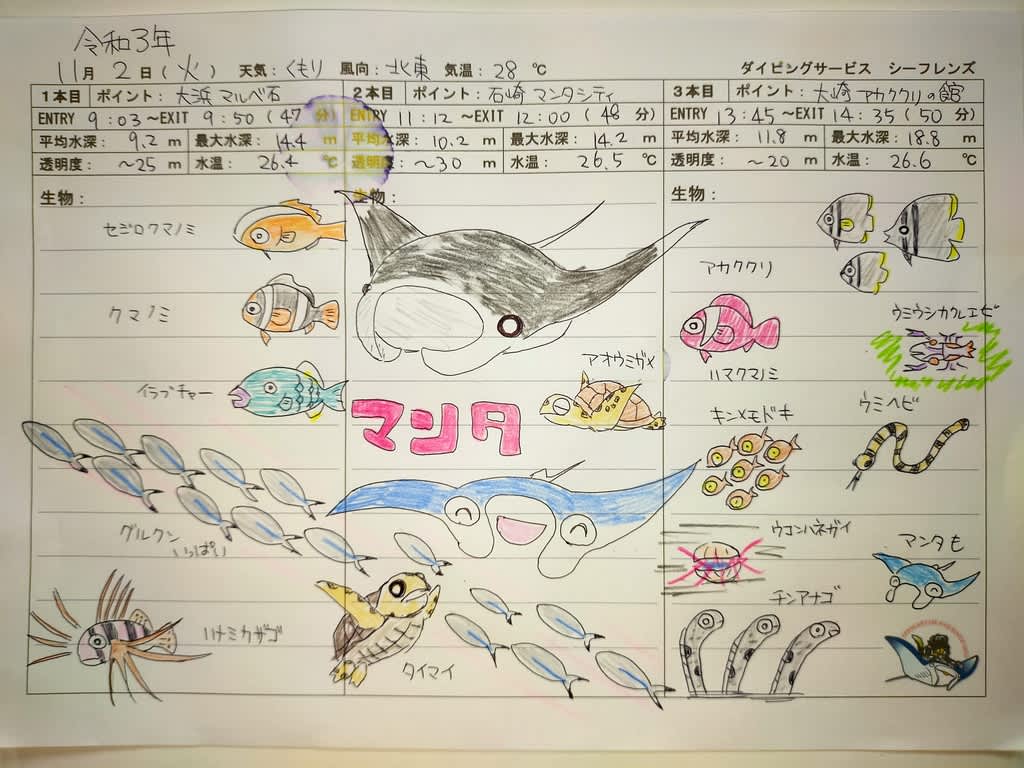 令和3年
11月 2日(火) 天気：くもり 風向：北東 気温：28 ℃ ダイビングサービス シーフレンズ
1本目 ポイント：大浜 マルベ石
ENTRY 9:03 ～EXIT 9:50 (47 分)
平均水深： 9.2 m 最大水深： 14.4 m
透明度： ～25 m 水温： 26.4 ℃
生物：
セジロクマノミ
クマノミ
イラブチャー
グルクン
いっぱい
ハナミカサゴ
2本目 ポイント：石崎 マンタシティ
ENTRY 11:12 ～EXIT 12:00 (48 分)
平均水深： 10.2 m 最大水深： 14.2 m
透明度： ～30 m 水温： 26.5 ℃
生物：
アオウミガメ
マンタ
タイマイ
3本目 ポイント：大崎 アカククリの館
ENTRY 13:45 ～EXIT 14:35 (50 分)
平均水深： 11.8 m 最大水深： 18.8 m
透明度： ～20 m 水温： 26.6 ℃
生物：
アカククリ
ウミウシカクレエビ
ハマクマノミ
ウミヘビ
キンメモドキ
ウコンハネガイ
マンタも
チンアナゴ